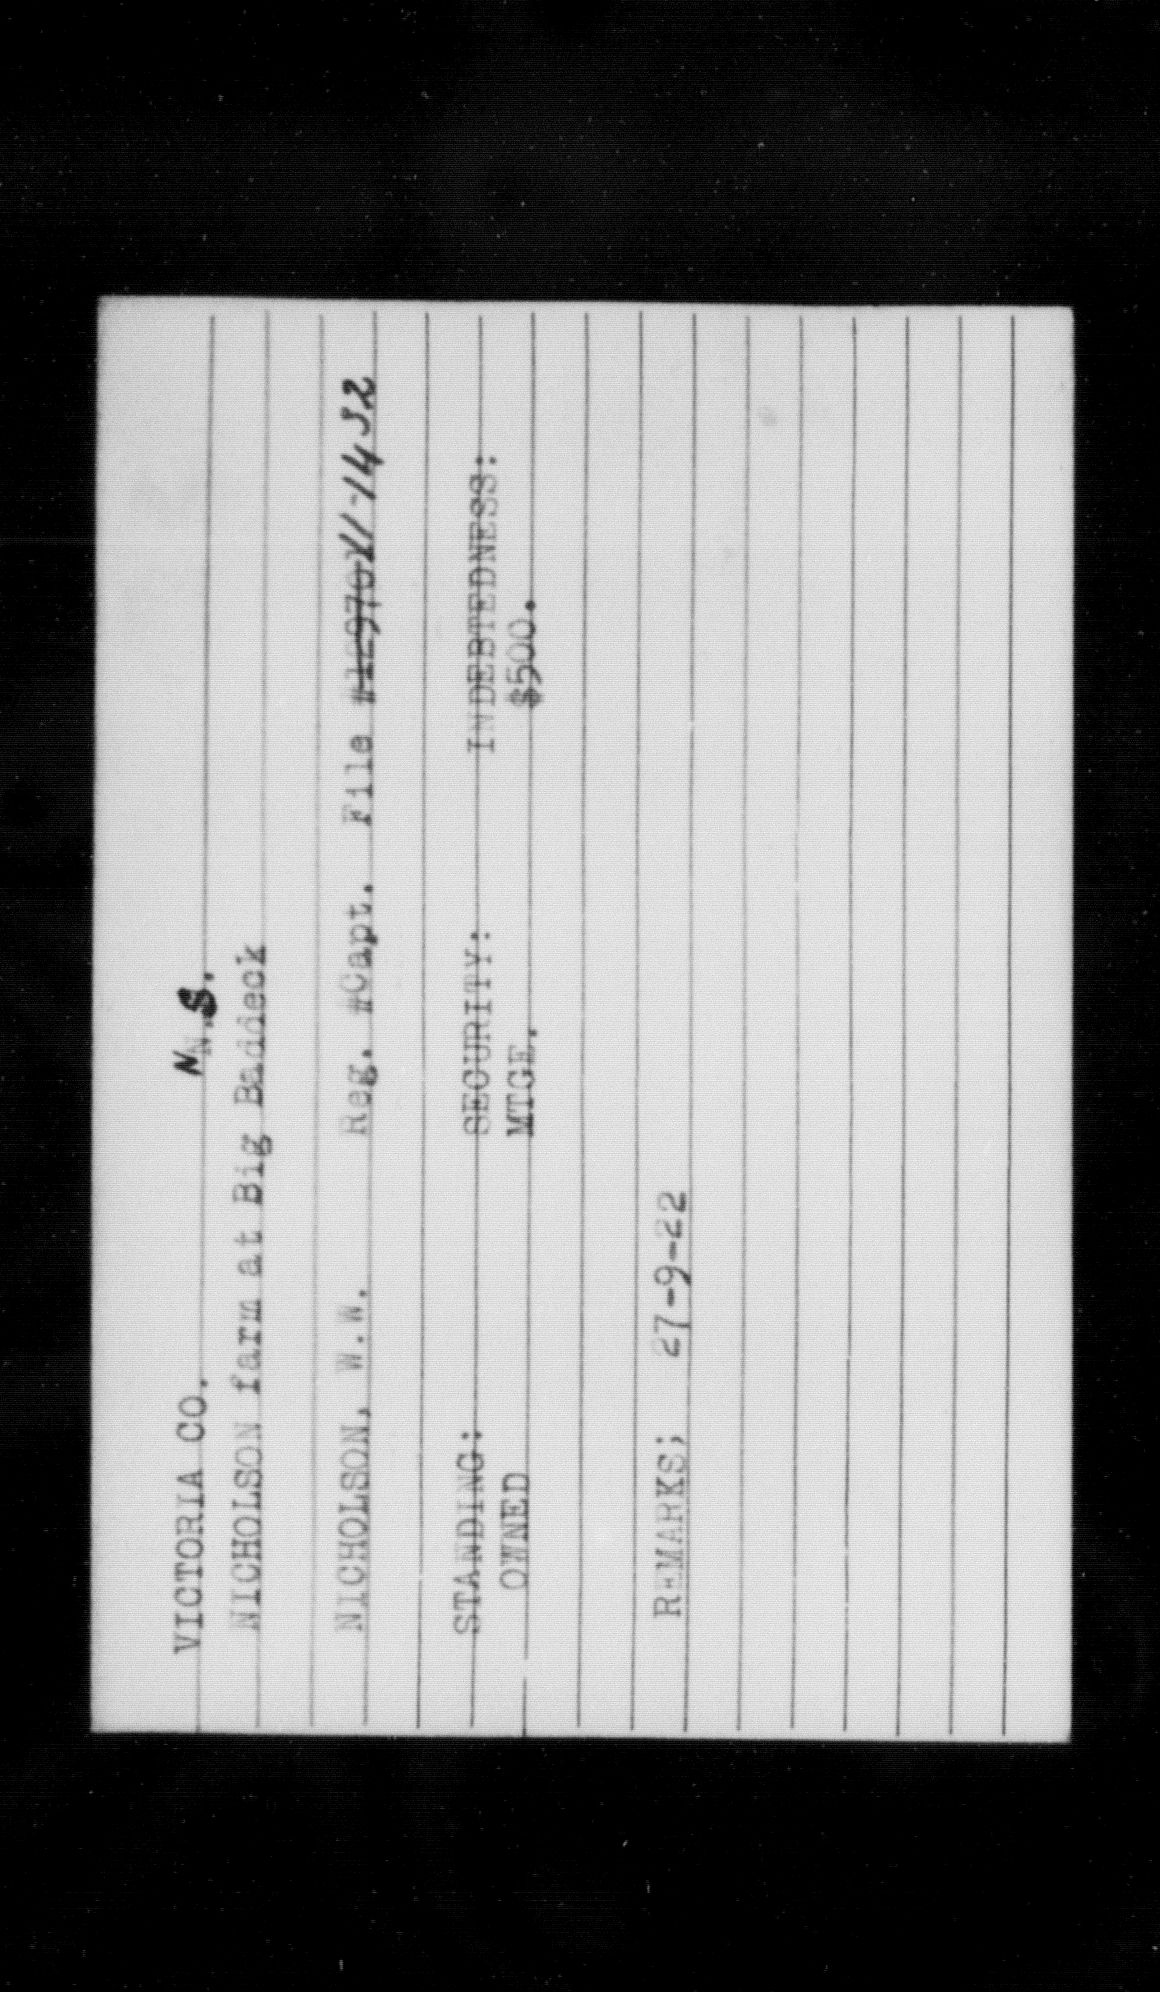 VICTORIA CO. N.S.
NICHOLSON farm at Big Baddeck
NICHOLSON, W.W. Reg. #Capt. File #12970 11-1432
STANDING: SECURITY: INDEBTEDNESS:
OWNED MTGE. $500.
REMARKS; 27-9-22